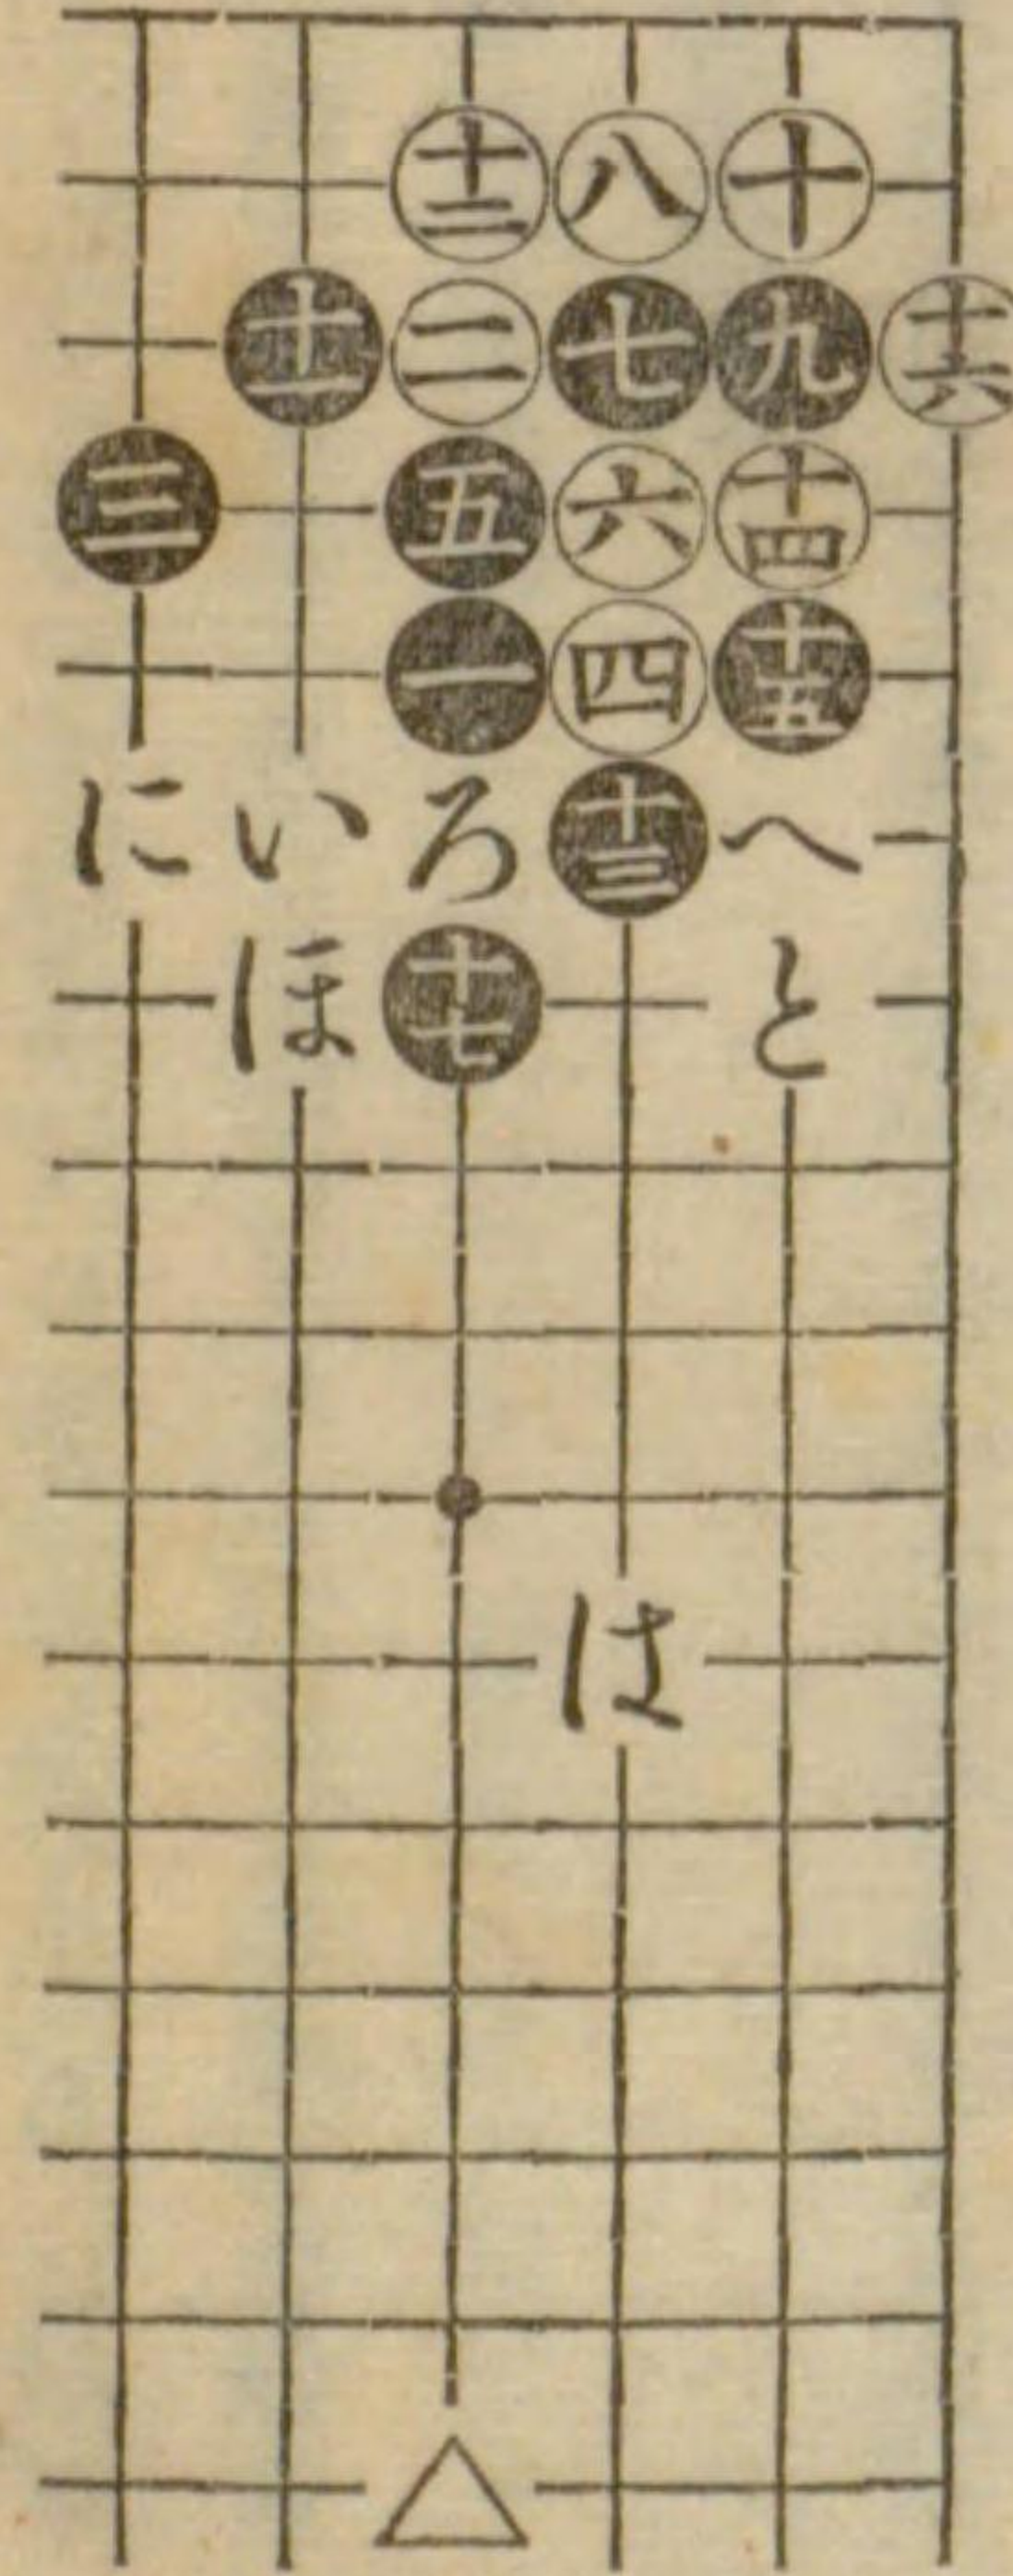 十二 八 十
十一 二 七 九 十六
三 五 六 十四
一 四 十五
に い ろ 十三 へ
ほ 十七 と
は